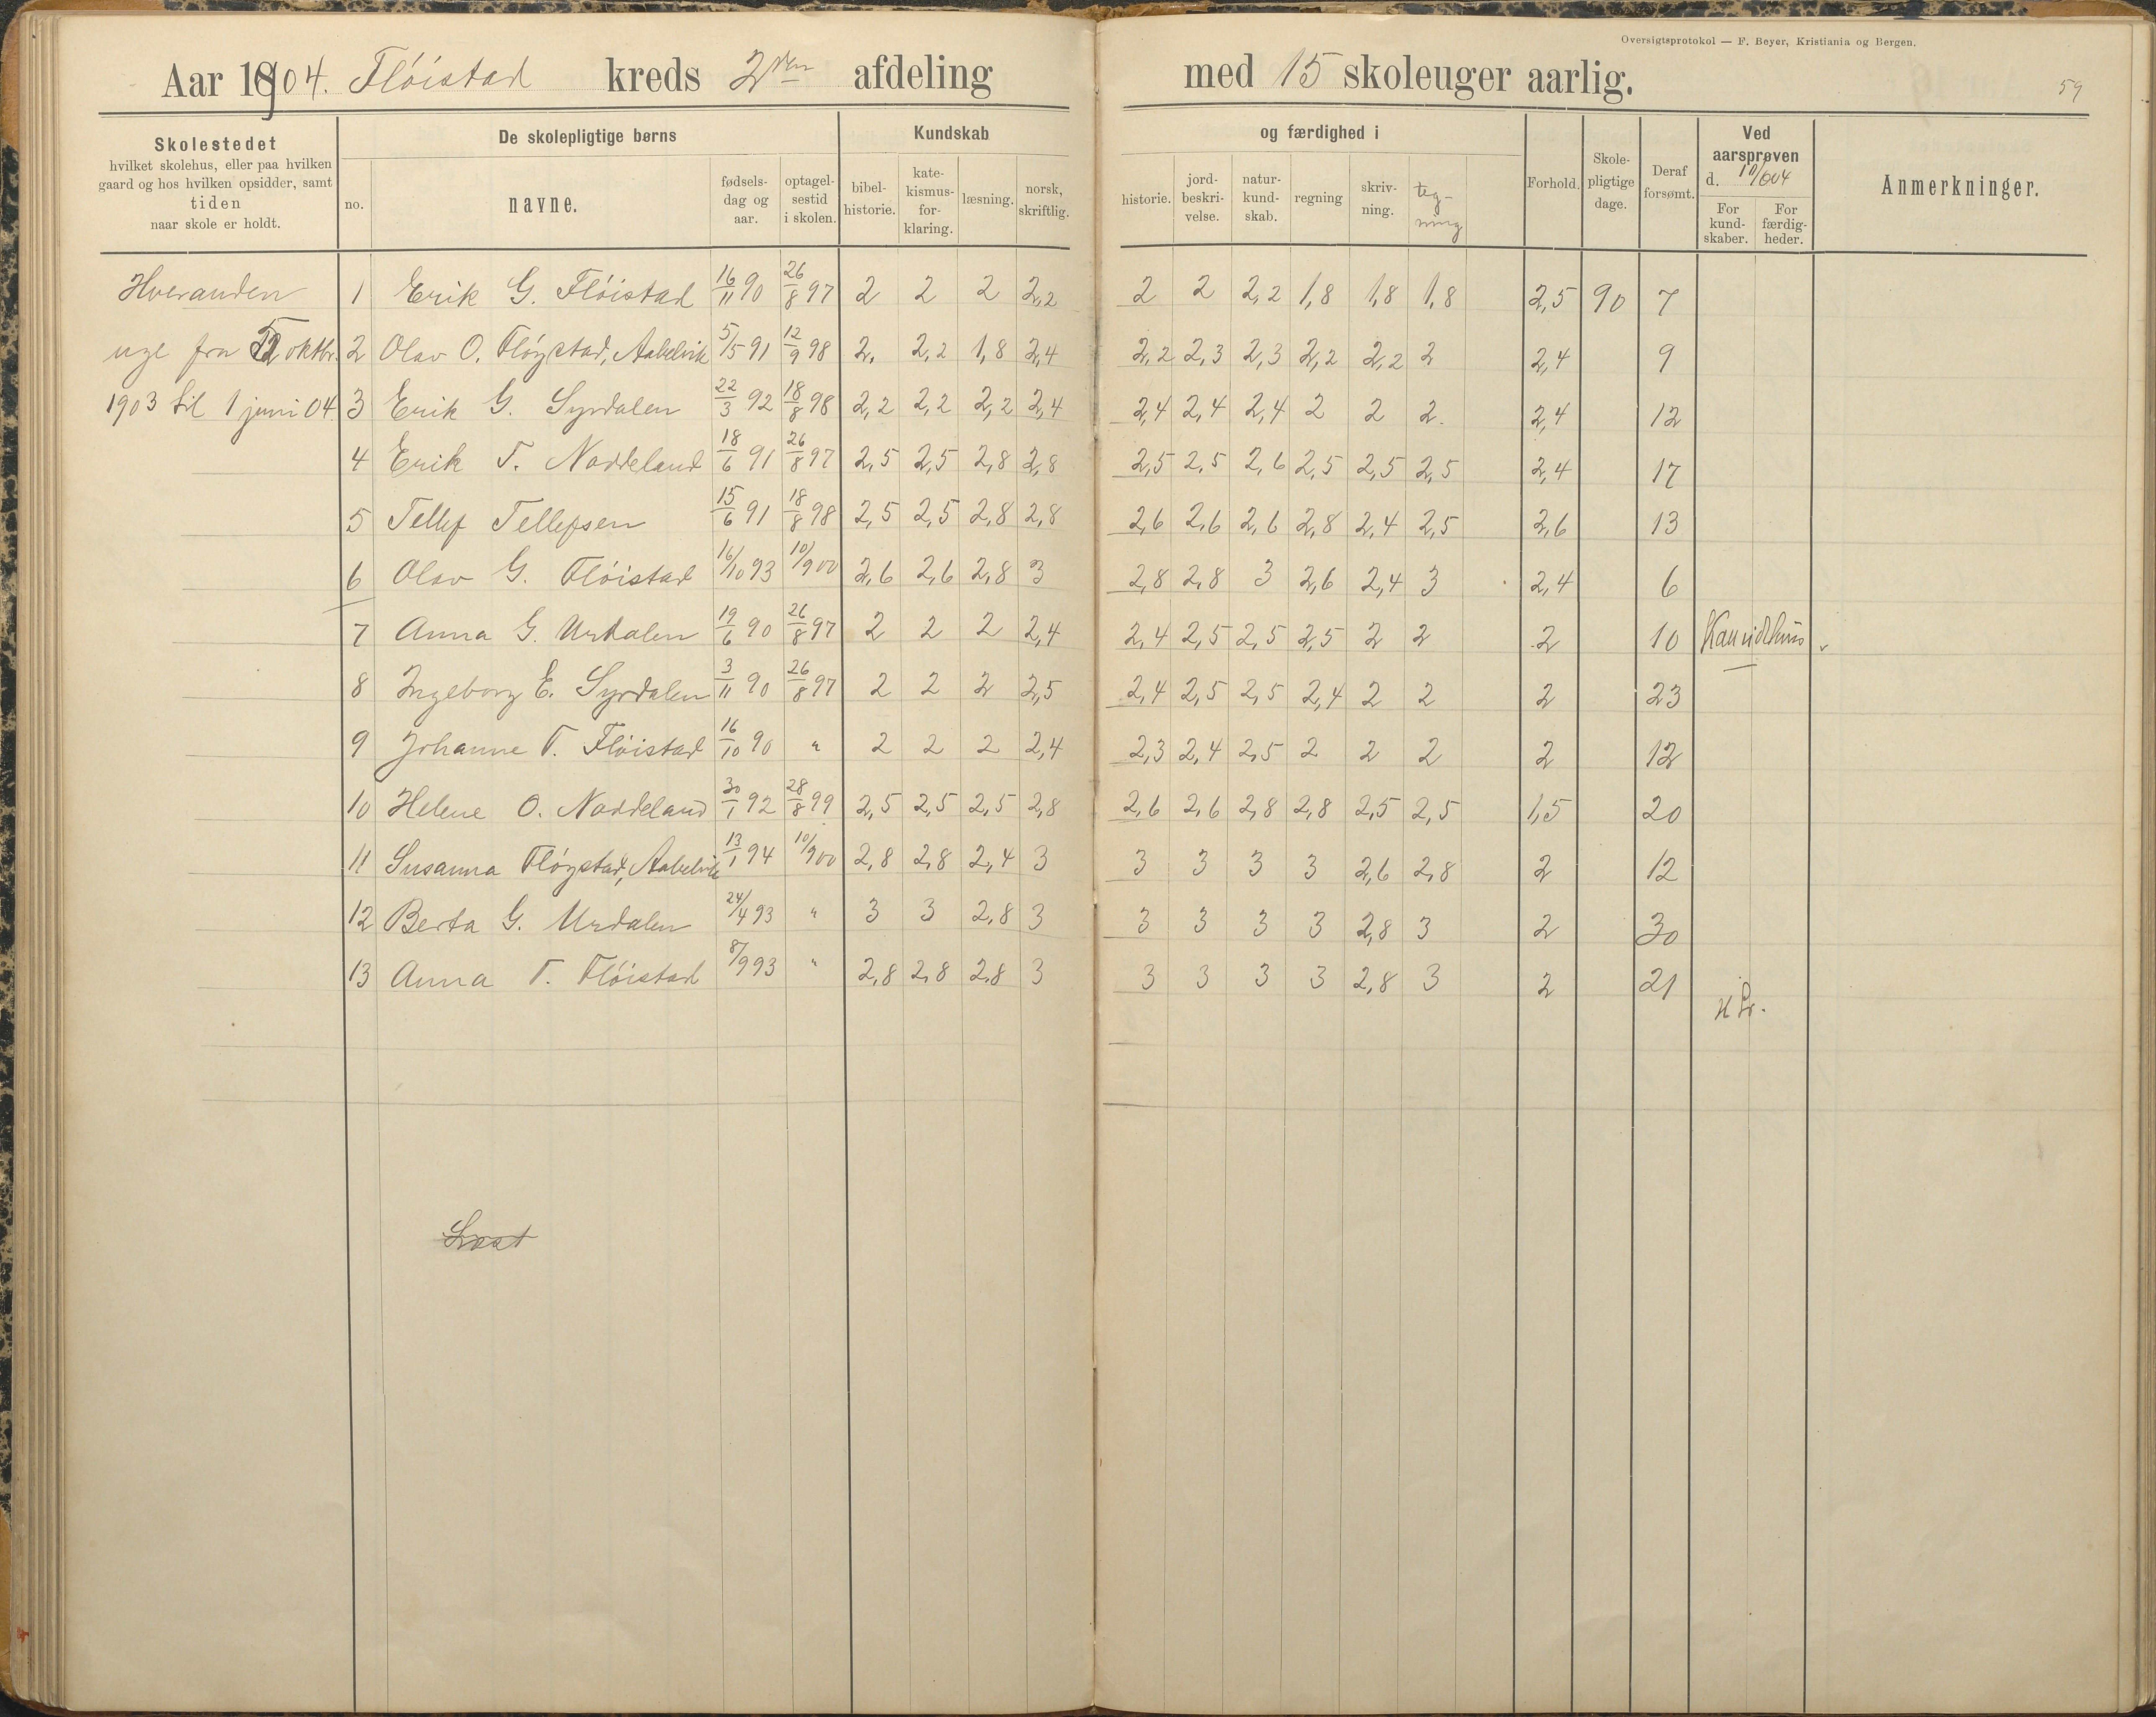 Oversigtsprotokol — F. Beyer, Kristiania og Bergen.
Aar 1904. Flöistad kreds 2den afdeling med 15 skoleuger aarlig.
59
Skolestedet
hvilket skolehus, eller paa hvilken
gaard og hos hvilken opsidder, samt
tiden
naar skole er holdt.
De skolepligtige børns
no.
navne.
fødsels-
dag og
aar.
optagel-
sestid
i skolen.
Kundskab
bibel-
historie.
kate-
kismus-
for-
klaring.
læsning.
norsk,
skriftlig.
og færdighed i
historie.
jord-
beskri-
velse.
natur-
kund-
skab.
regning
skriv-
ning.
teg-
ning
Forhold.
Skole-
pligtige
dage.
Deraf
forsømt.
Ved
aarsprøven
d. 10/6 04
For
kund-
skaber.
For
færdig-
heder.
Anmerkninger.
Hveranden 1 Erik G. Flöistad 16/11 90 26/8 97 2 2 2 2,2 2 2 2,2 1,8 1,8 1,8 2,5 90 7
uge fra oktbr. 2 Olav O. Fløystad, Aabelvik 5/5 91 12/9 98 2. 2,2 1,8 2,4 2,2 2,3 2,3 2,2 2,2 2 2,4 9
1903 til 1 juni 04 3 Erik G. Syrdalen 22/3 92 18/8 98 2,2 2,2 2,2 2,4 2,4 2,4 2,4 2 2 2. 2,4 12
4 Erik T. Noddeland 18/6 91 26/8 97 2,5 2,5 2,8 2,8 2,5 2,5 2,6 2,5 2,5 2,5 2,4 17
5 Tellef Tellefsen 15/6 91 18/8 98 2,5 2,5 2,8 2,8 2,6 2,6 2,6 2,8 2,4 2,5 2,6 13
6 Olav G. Flöistad 16/10 93 10/9 00 2,6 2,6 2,8 3 2,8 2,8 3 2,6 2,4 3 2,4 6
7 Anna G. Urdalen 19/6 90 26/8 97 2 2 2 2,4 2,4 2,5 2,5 2,5 2 2 2 10
8 Ingeborg E. Syrdalen 3/11 90 26/8 97 2 2 2 2,5 2,4 2,5 2,5 2,4 2 2 2 23
9 Johanne T. Flöistad 16/10 90 " 2 2 2 2,4 2,3 2,4 2,5 2 2 2 2 12
10 Helene O. Noddeland 30/1 92 28/8 99 2,5 2,5 2,5 2,8 2,6 2,6 2,8 2,8 2,5 2,5 1,5 20
11 Susanna Fløystad, Aabelvik 13/1 94 10/9 00 2,8 2,8 2,4 3 3 3 3 3 2,6 2,8 2 12
12 Berta G. Urdalen 24/4 93 " 3 3 2,8 3 3 3 3 3 2,8 3 2 30
13 Anna T. Flöistad 8/9 93 " 2,8 2,8 2,8 3 3 3 3 3 2,8 3 2 21